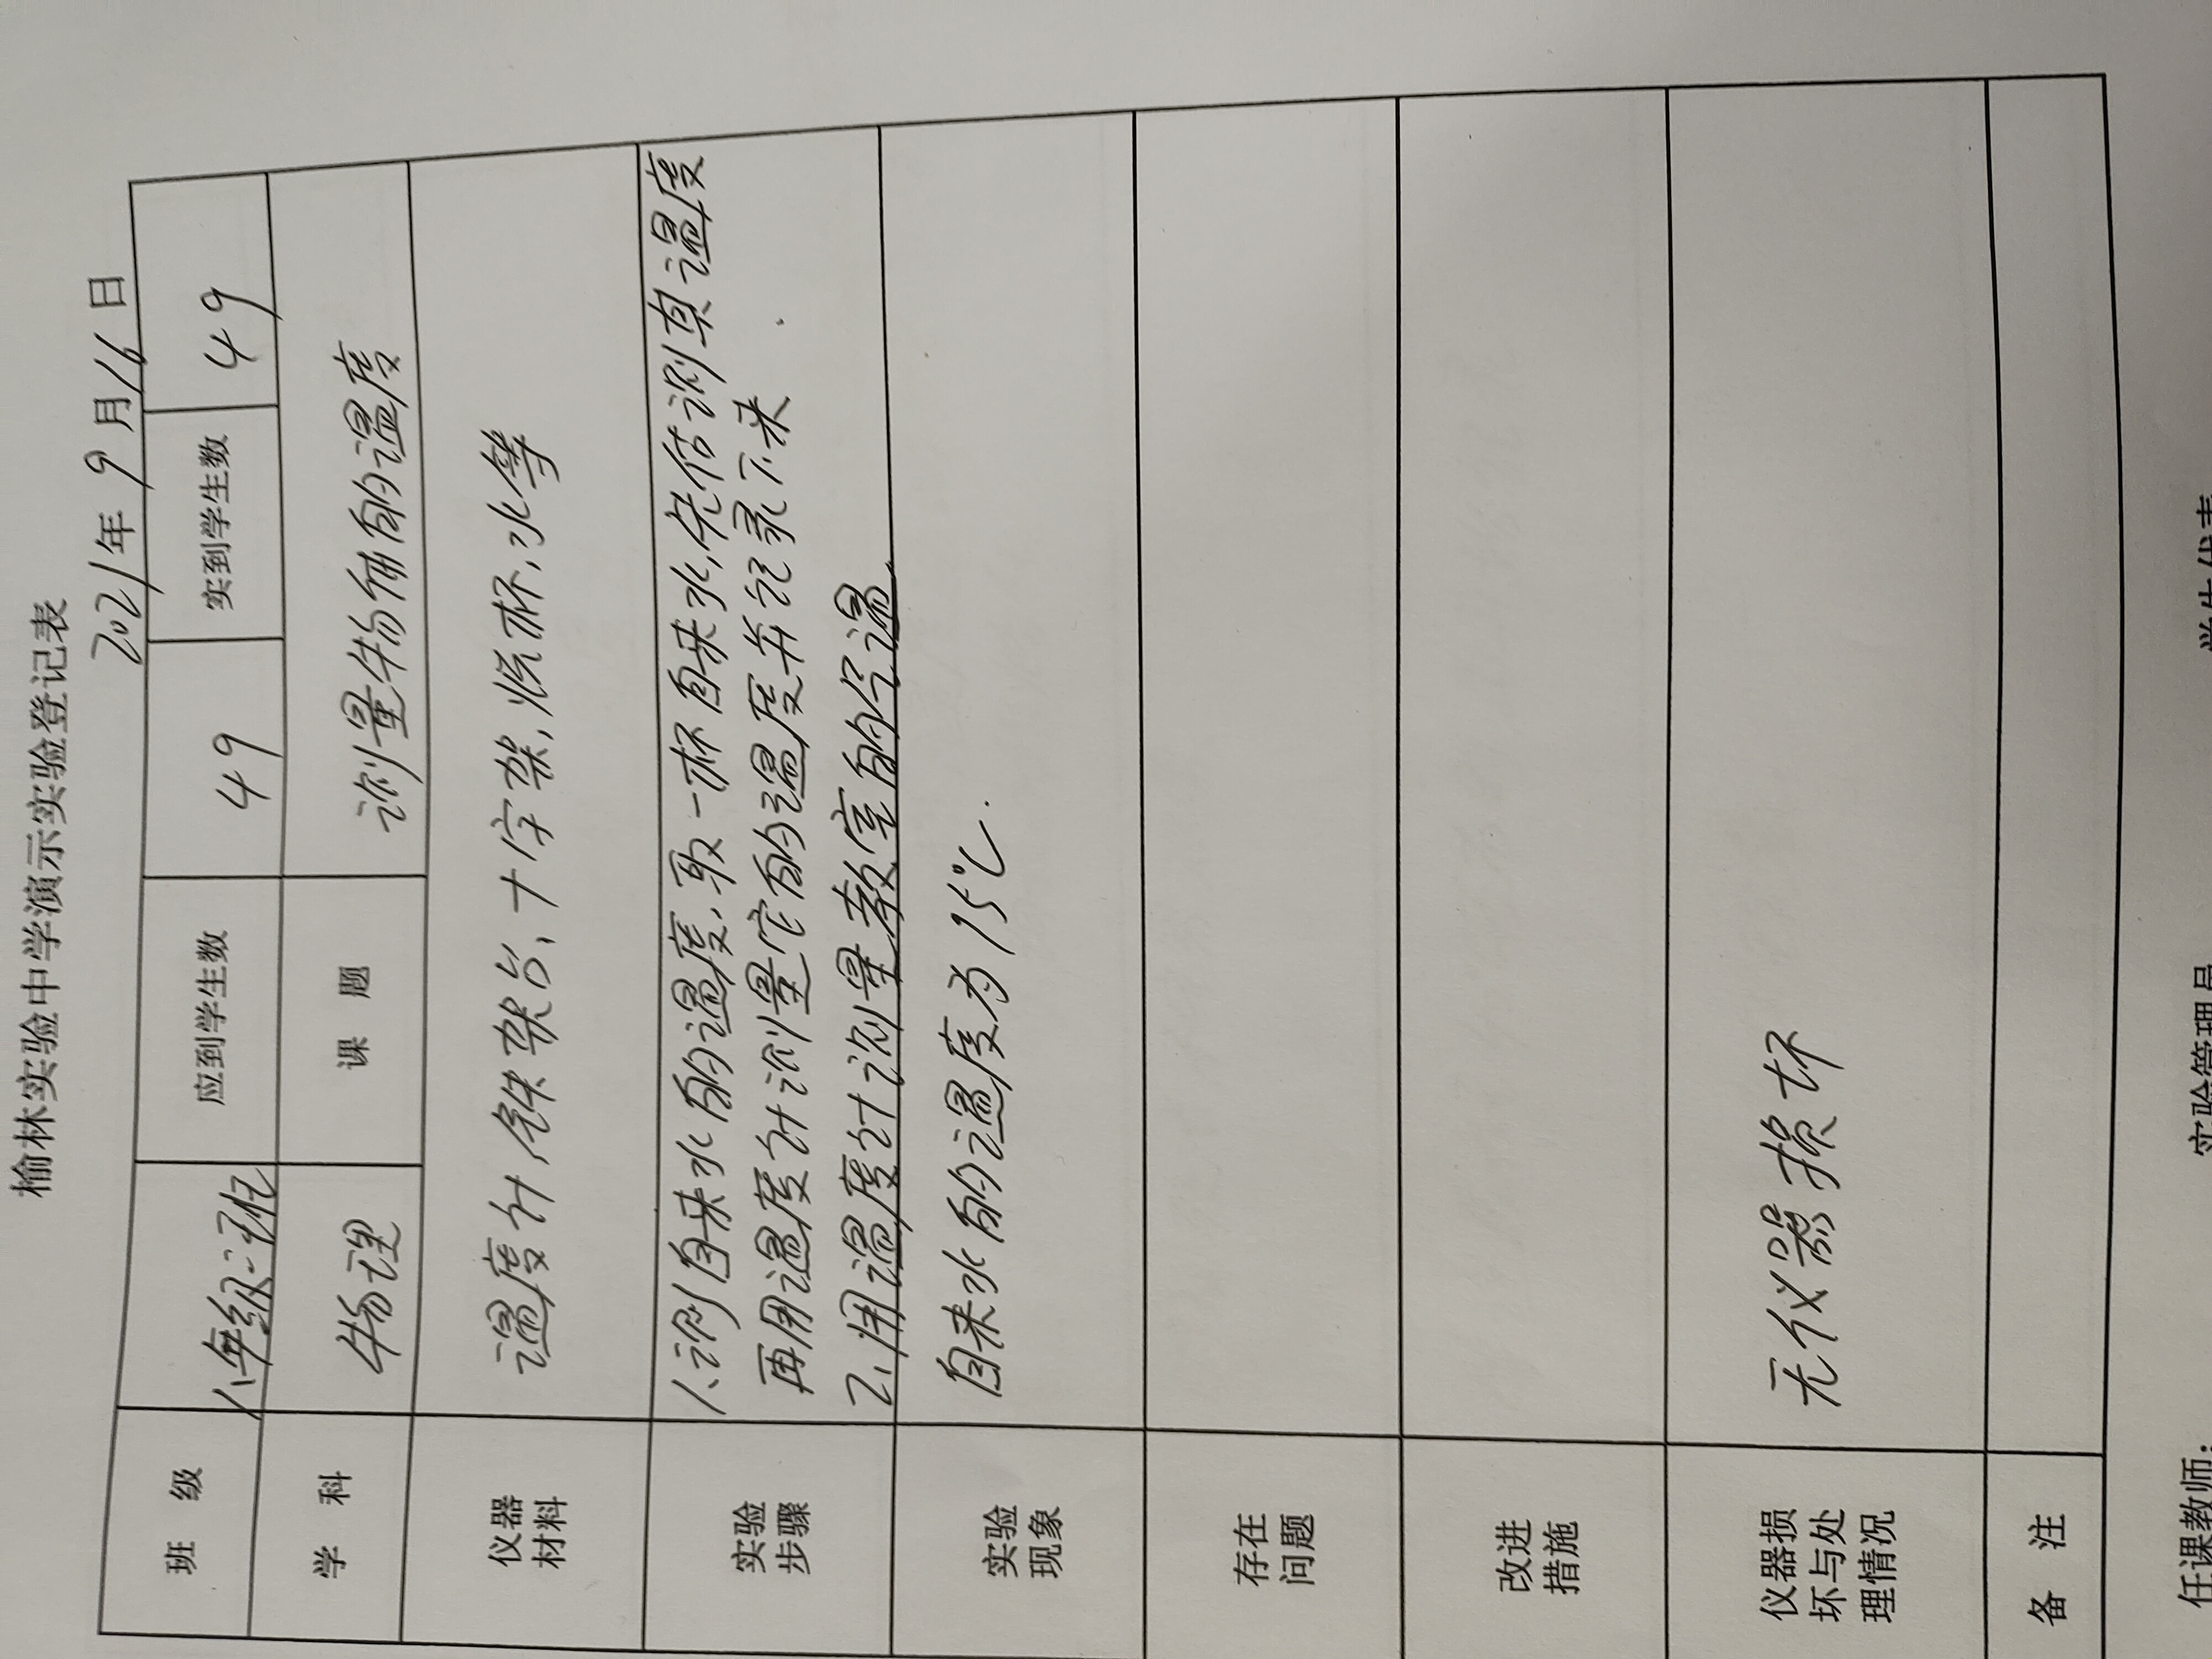 榆林实验中学演示实验登记表
2021年 9 月 16 日
班 级 八年级 应到学生数 49 实到学生数 49
学 科 物理 课 题 测量物体的温度
仪器材料 温度计 铁架台、十字架、烧杯、水等
实验步骤 1、测自来水的温度、取一杯自来水,先估测其温度
再用温度计测量它的温度并记录下来.
2、用温度计测量教室的气温
实验现象 自来水的温度为15℃.
存在问题
改进措施
仪器损坏与处理情况 无仪器损坏
备 注
任课教师: 实验管理员 学生代表